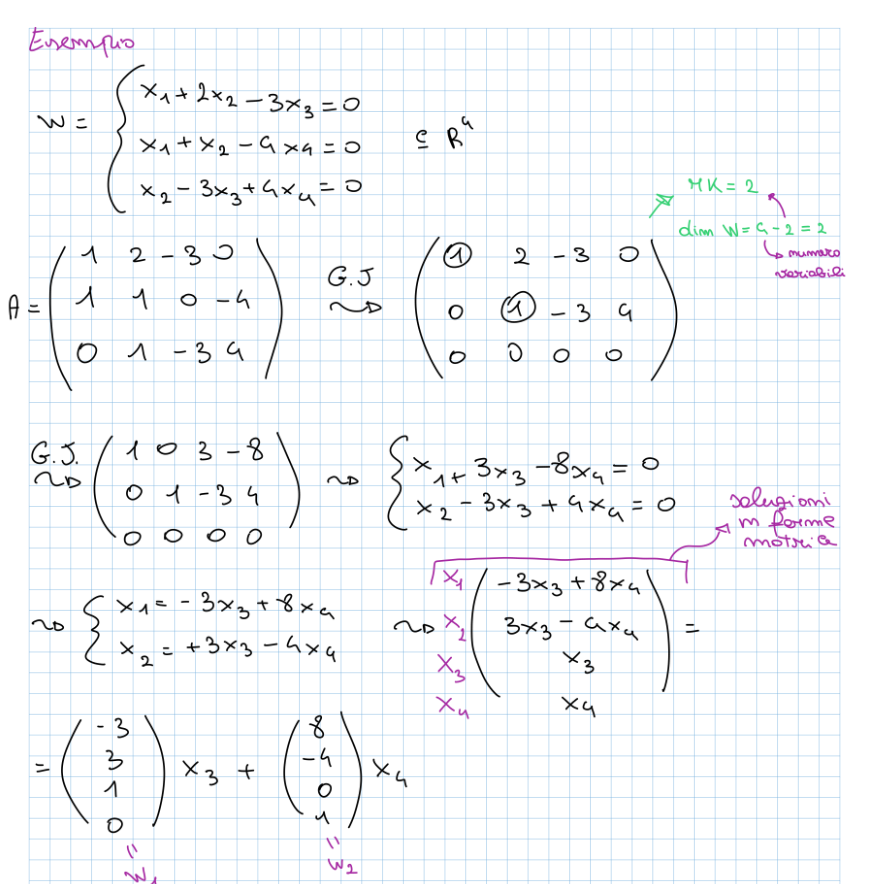 Esempio
W = { x₁ + 2x₂ - 3x₃ = 0
x₁ + x₂ - 4x₄ = 0 ⊆ R⁴
x₂ - 3x₃ + 4x₄ = 0
rK = 2
dim W = 4 - 2 = 2
numero
variabili
A = ( 1 2 -3 0
1 1 0 -4
0 1 -3 4 )
G.J
( 1 2 -3 0
0 1 -3 4
0 0 0 0 )
G.J.
( 1 0 3 -8
0 1 -3 4
0 0 0 0 )
{ x₁ + 3x₃ - 8x₄ = 0
x₂ - 3x₃ + 4x₄ = 0
soluzioni
in forma
matrice
{ x₁ = -3x₃ + 8x₄
x₂ = +3x₃ - 4x₄
x₁ ( -3x₃ + 8x₄
x₂ 3x₃ - 4x₄
x₃ x₃
x₄ x₄ ) =
= ( -3 3 1 0 ) x₃ + ( 8 -4 0 1 ) x₄
= w₁
= w₂